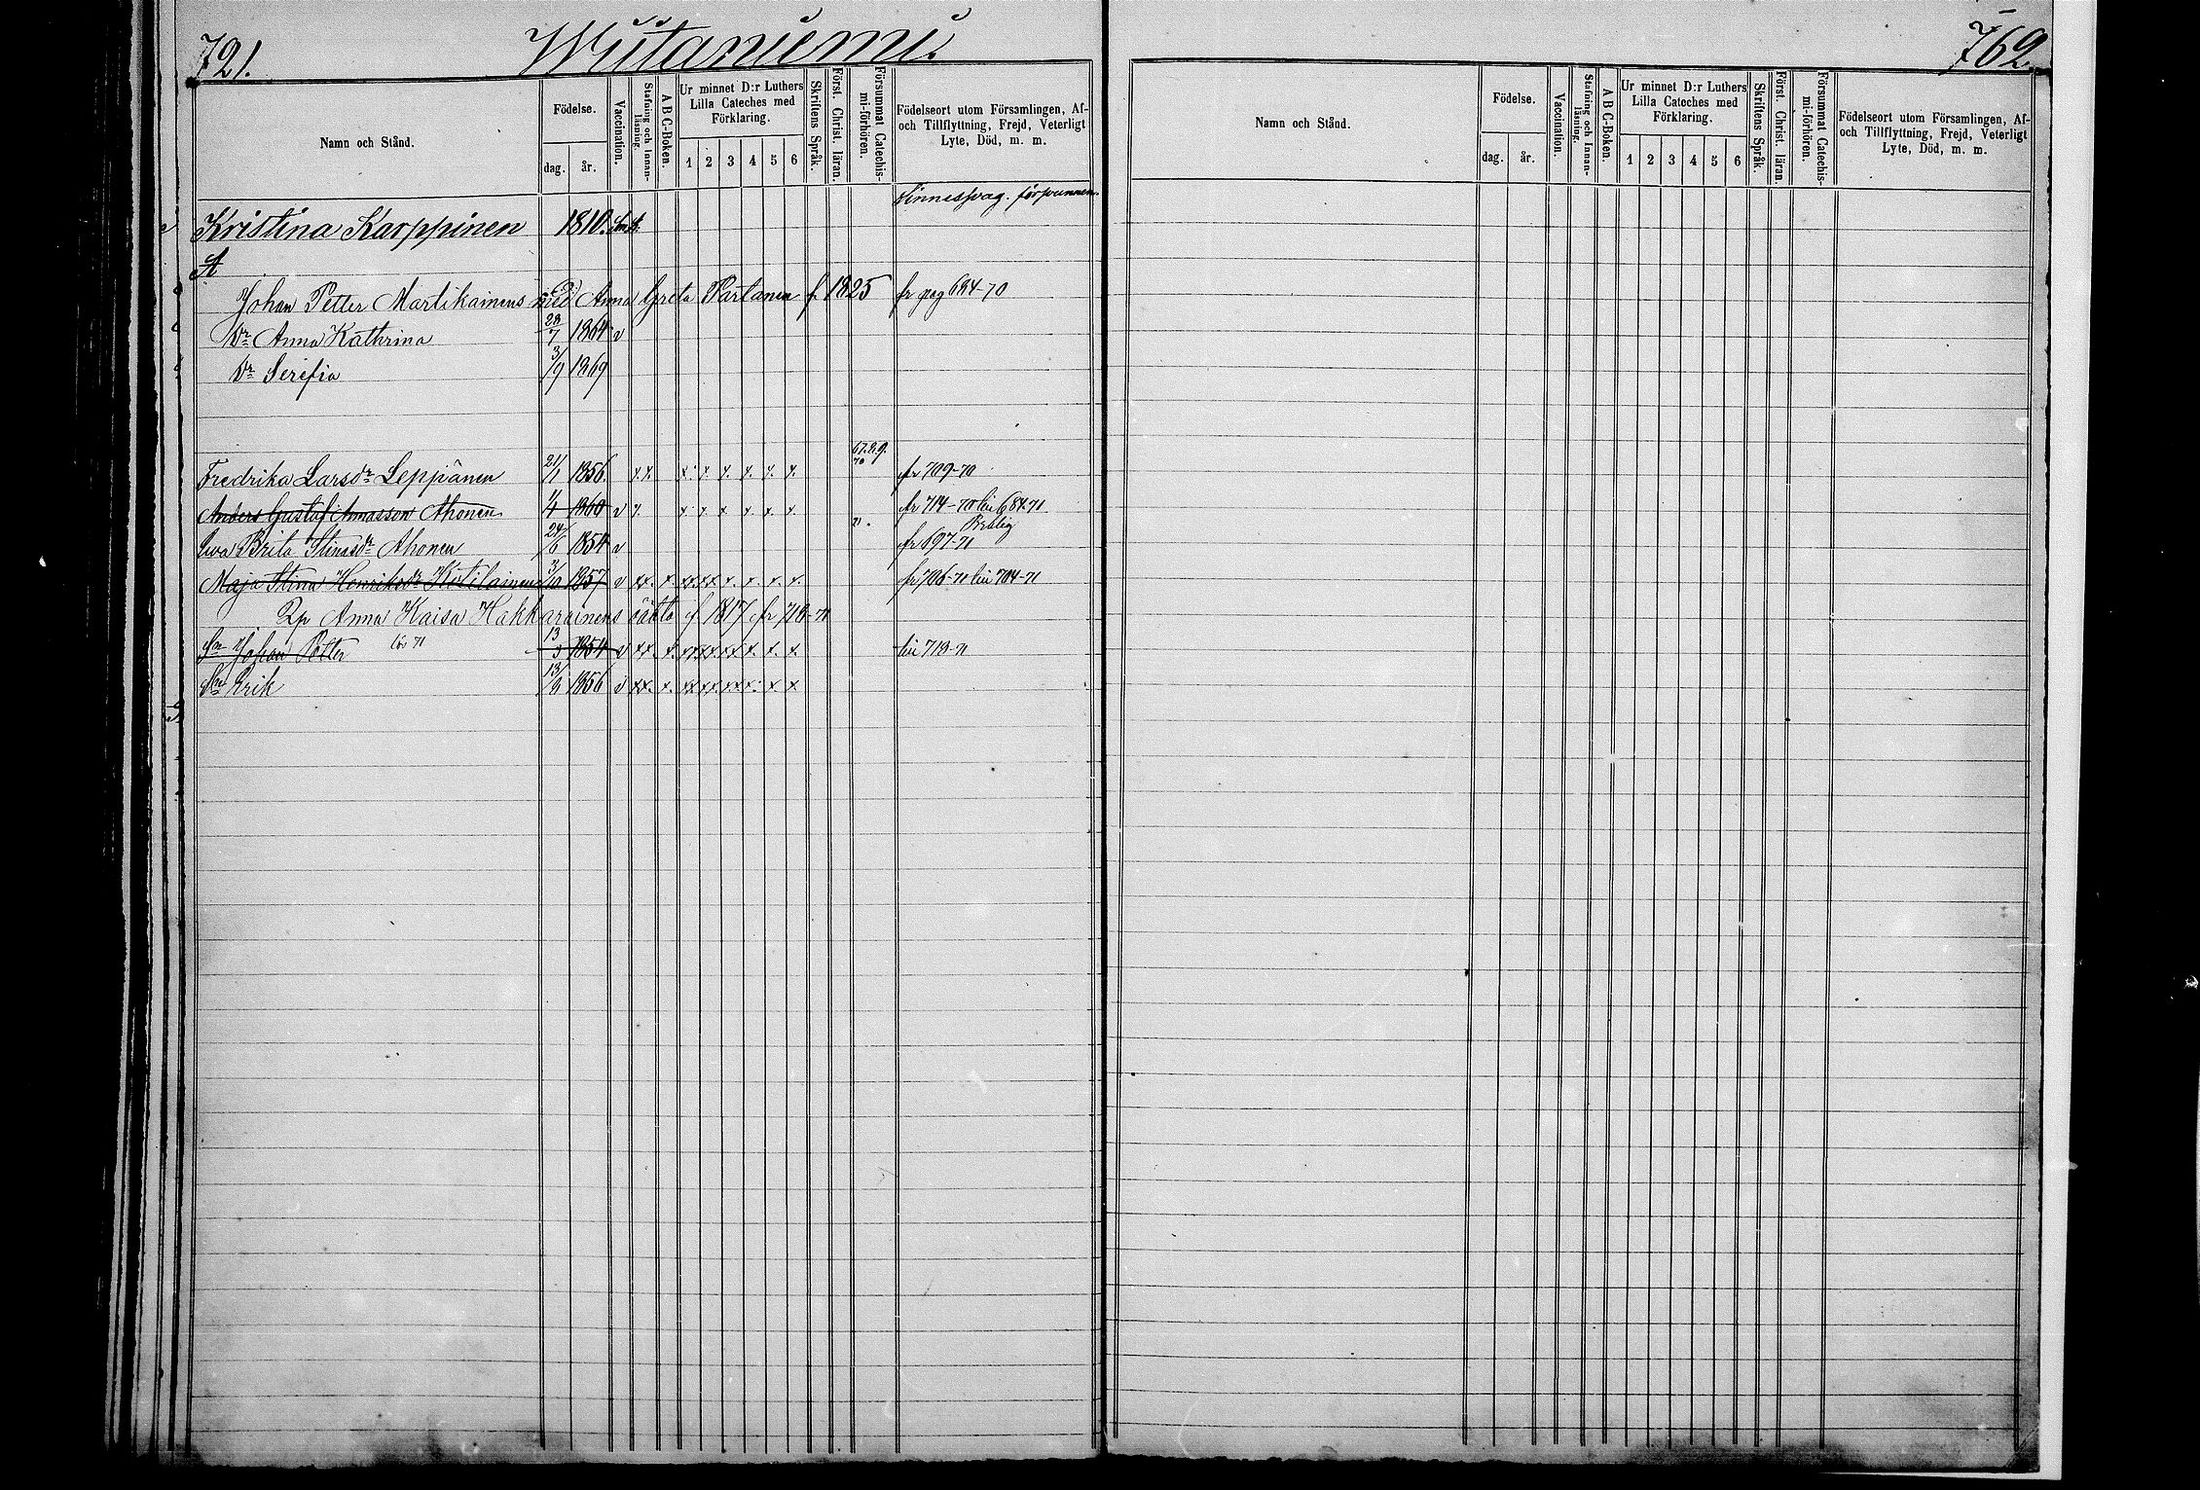 721. Wiitaniemi. 762.
Namn och Stånd. Födelse. dag. år. Vaccination. Stafning och Innanläsning. A B C-Boken. Ur minnet D:r Luthers Lilla Cateches med Förklaring. 1 2 3 4 5 6 Skriftens Språk. Först. Christ. läran. Försummat Catechismi-förhören. Födelseort utom Församlingen, Af- och Tillflyttning, Frejd, Veterligt Lyte, Död, m. m.
Namn och Stånd. Födelse. dag. år. Vaccination. Stafning och Innanläsning. A B C-Boken. Ur minnet D:r Luthers Lilla Cateches med Förklaring. 1 2 3 4 5 6 Skriftens Språk. Först. Christ. läran. Försummat Catechismi-förhören. Födelseort utom Församlingen, Af- och Tillflyttning, Frejd, Veterligt Lyte, Död, m. m.
Sinnessvag. försvunnen.
Kristina Karppinen 1810.
A
Johan Petter Martikainens med Anna Greta Partanen f. 1825 fr pag 684-70
Dr Anna Kathrina 28/7 1864 v
Dr Serefia 3/9 1869
67.8.9.
70
Fredrika Larsdr Leppänen 21/1 1856. x x. x x x. x. x. x. fr 709-70
Anders Gustaf Annasson Ahonen 1/4 1860 v x. x x x x. x. x. fr 714-70 till 684-71
71.
Ewa Brita Stinasdr Ahonen 24/6 1854 v fr 697-71
Maja Stina Henriksdr Kotilainen 3/10 1857 v xx. x. xx.xx. x. x. x. x. fr 706-70 till 704-71
Anna Kaisa Hakkarainens f 1817 fr 718-71
Sn Johan Petter 13/3 1854 v xx. x. xx xx xx x. x. x. till 718-71
Sn Erik 13/9 1856 v xx. x. xx xx. xx x. x x